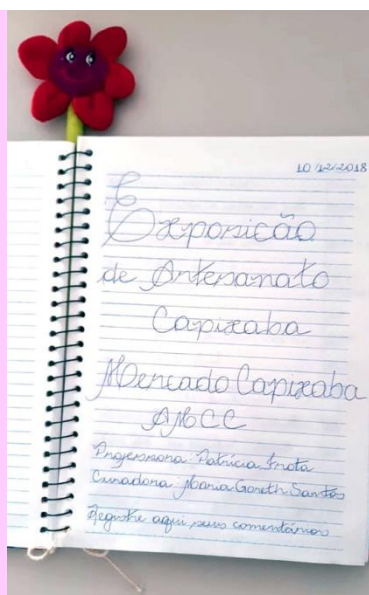 10/12/2018
Exposição
de Artesanato
Capixaba
Mercado Capixaba
AMCC
Professora: Patrícia Frota
Curadora Maria Goreth Santos
Registre aqui seus comentários